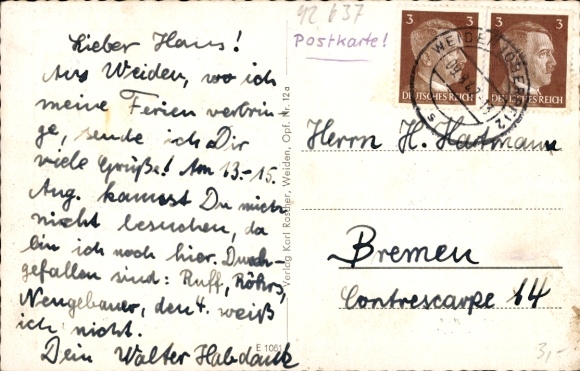 Lieber Hans!
Aus Weiden, wo ich
meine Ferien verbrin-
ge, sende ich Dir
viele Grüße! Am 13.-15.
Aug. kannst Du mich
nicht besuchen, da
bin ich noch hier. Durch-
gefallen sind: Ruff, Röhrs,
Neugebauer, den 4. weiß
ich nicht.
Dein Walter Habdank
E 1061
Verlag Karl Roscher, Weiden, Opf. Nr. 12a
42 637
Postkarte!
3 3
DEUTSCHES REICH
3 3
DEUTSCHES REICH
WEIDEN (OBERPF) 2
Herrn H. Hartmann
Bremen
Contrescarpe 14
3,-